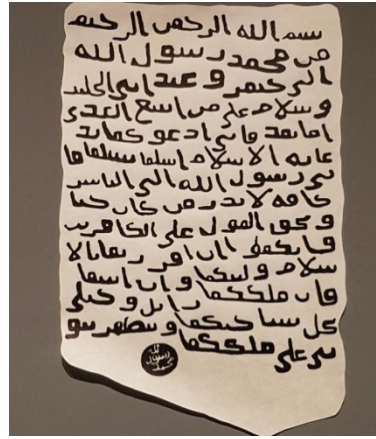 بسم الله الرحمن الرحيم
من محمد رسول الله
الى جيفر وعبد ابني الجلند
وسلام على من اتبع الهدى
اما بعد فاني ادعوكما بد
عاية الاسلام اسلما تسلما فا
ني رسول الله الى الناس
كافة لانذر من كان حيا
ويحق القول على الكافرين
فانكما ان اقررتما بالا
سلام وليتكما وان ابيتما
فان ملككما زايل وخيلي
تحل ساحتكما وتظهر نبو
تي على ملككما
الله
رسول
محمد